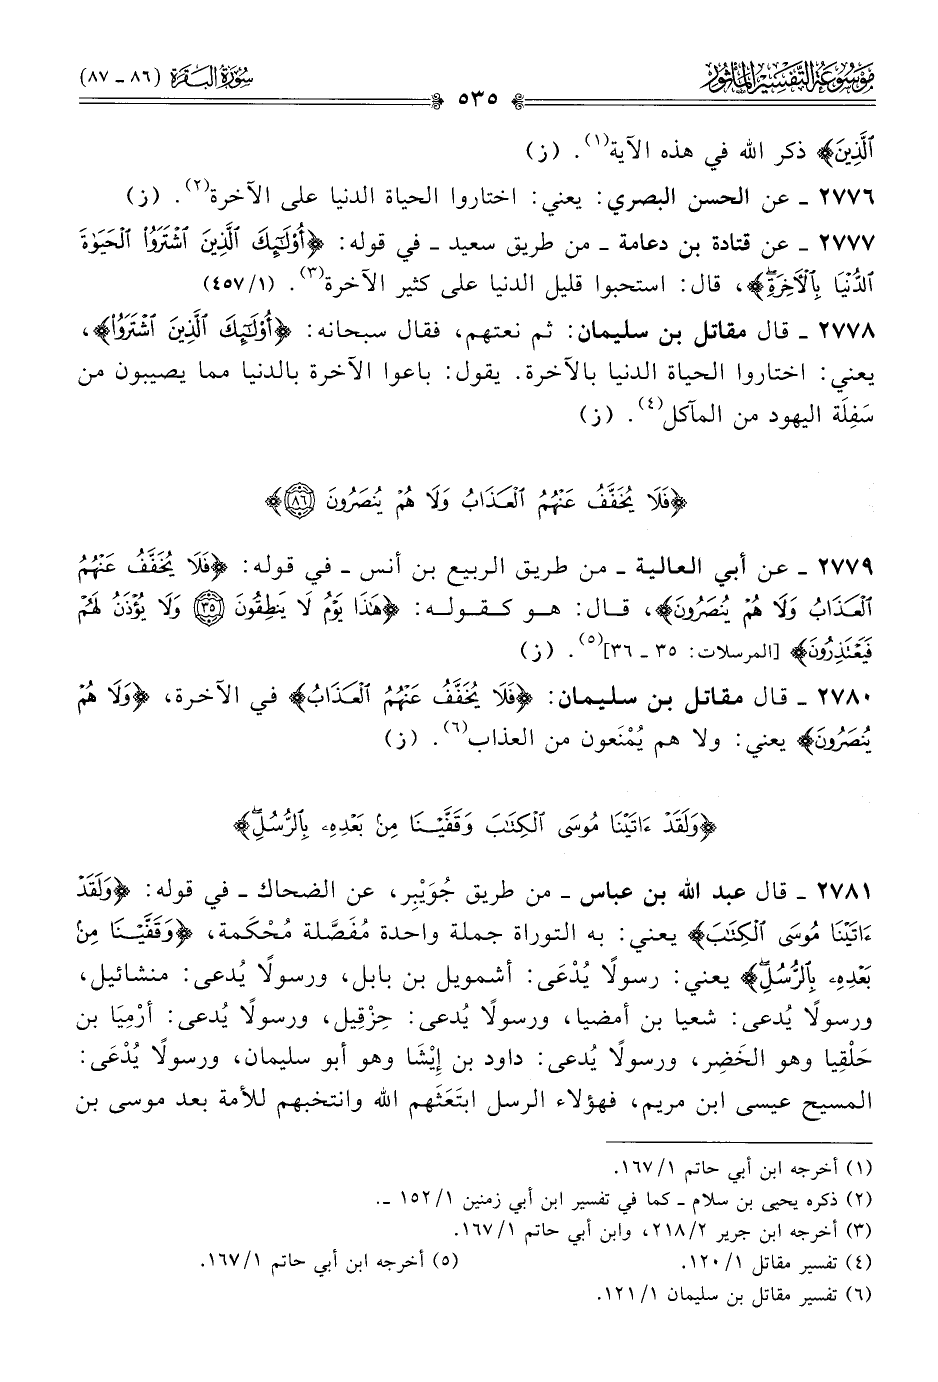 مَوْسُوعَة التَّفْسِير المَأْثُور
سُورَةُ البَقَرَة (٨٦ - ٨٧)
٥٣٥
ٱلَّذِينَ﴾ ذكر الله في هذه الآية(١). (ز)
٢٧٧٦ ـ عن الحسن البصري: يعني: اختاروا الحياة الدنيا على الآخرة(٢). (ز)
٢٧٧٧ ـ عن قتادة بن دعامة ـ من طريق سعيد ـ في قوله: ﴿أُوْلَٰٓئِكَ ٱلَّذِينَ ٱشْتَرَوُاْ ٱلْحَيَوٰةَ
ٱلدُّنْيَا بِٱلْأَخِرَةِۖ﴾، قال: استحبوا قليل الدنيا على كثير الآخرة(٣). (٤٥٧/١)
٢٧٧٨ ـ قال مقاتل بن سليمان: ثم نعتهم، فقال سبحانه: ﴿أُوْلَٰٓئِكَ ٱلَّذِينَ ٱشْتَرَوُاْ﴾،
يعني: اختاروا الحياة الدنيا بالآخرة. يقول: باعوا الآخرة بالدنيا مما يصيبون من
سَفِلَة اليهود من المآكل(٤). (ز)
﴿فَلَا يُخَفَّفُ عَنْهُمُ ٱلْعَذَابُ وَلَا هُمْ يُنصَرُونَ ٨٦﴾
٢٧٧٩ ـ عن أبي العالية ـ من طريق الربيع بن أنس ـ في قوله: ﴿فَلَا يُخَفَّفُ عَنْهُمُ
ٱلْعَذَابُ وَلَا هُمْ يُنصَرُونَ﴾، قال: هو كقوله: ﴿هَٰذَا يَوْمُ لَا يَنطِقُونَ ٣٥ وَلَا يُؤْذَنُ لَهُمْ
فَيَعْتَذِرُونَ﴾ [المرسلات: ٣٥ ـ ٣٦](٥). (ز)
٢٧٨٠ ـ قال مقاتل بن سليمان: ﴿فَلَا يُخَفَّفُ عَنْهُمُ ٱلْعَذَابُ﴾ في الآخرة، ﴿وَلَا هُمْ
يُنصَرُونَ﴾ يعني: ولا هم يُمْنَعون من العذاب(٦). (ز)
﴿وَلَقَدْ ءَاتَيْنَا مُوسَى ٱلْكِتَٰبَ وَقَفَّيْنَا مِنۢ بَعْدِهِۦ بِٱلرُّسُلِۖ﴾
٢٧٨١ ـ قال عبد الله بن عباس ـ من طريق جُوَيْبِر، عن الضحاك ـ في قوله: ﴿وَلَقَدْ
ءَاتَيْنَا مُوسَى ٱلْكِتَٰبَ﴾ يعني: به التوراة جملة واحدة مُفَصَّلة مُحْكَمة، ﴿وَقَفَّيْنَا مِنۢ
بَعْدِهِۦ بِٱلرُّسُلِۖ﴾ يعني: رسولًا يُدْعَى: أشمويل بن بابل، ورسولًا يُدعى: منشائيل،
ورسولًا يُدعى: شعيا بن أمضيا، ورسولًا يُدعى: حِزْقِيل، ورسولًا يُدعى: أرْمِيَا بن
حَلْقِيا وهو الخَضِر، ورسولًا يُدعى: داود بن إِيْشَا وهو أبو سليمان، ورسولًا يُدْعَى:
المسيح عيسى ابن مريم، فهؤلاء الرسل ابتَعَثَهم الله وانتخبهم للأمة بعد موسى بن
(١) أخرجه ابن أبي حاتم ١٦٧/١.
(٢) ذكره يحيى بن سلام ـ كما في تفسير ابن أبي زمنين ١٥٢/١ ـ.
(٣) أخرجه ابن جرير ٢١٨/٢، وابن أبي حاتم ١٦٧/١.
(٤) تفسير مقاتل ١٢٠/١.
(٥) أخرجه ابن أبي حاتم ١٦٧/١.
(٦) تفسير مقاتل بن سليمان ١٢١/١.